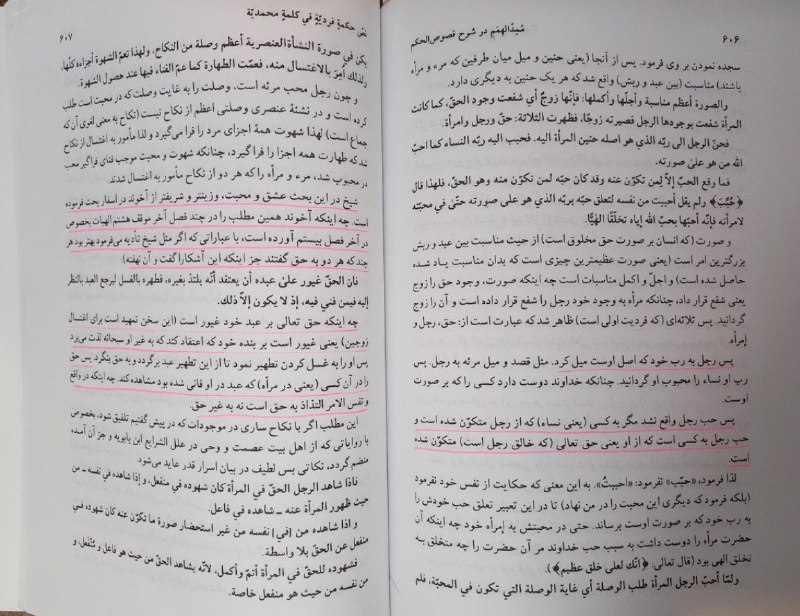 ۶۰۶
مُمِدّالهِمَم در شرح فصوص‌الحکم
سجده نمودن بر وی فرمود. پس از آنجا (یعنی حنین و میل میان طرفین که مرء و مرأه
باشند) مناسبت (بین عبد و ربش) واقع شد که هر یک حنین به دیگری دارد.
والصورة أعظم مناسبة وأجلّها وأکملها: فإنّها زوجٌ أي شفعت وجود الحقّ، کما کانت
المرأة شفعت بوجودها الرجل فصیرته زوجًا، فظهرت الثلاثة: حقّ، ورجل وامرأة.
فحنّ الرجل الی ربّه الذي هو اصله حنین المرأة الیه. فحبب الیه ربّه النساء کما احبّ
الله من هو علیٰ صورته.
فما وقع الحبّ إلّا لِمن تکوّن عنه وقد کان حبّه لمن تکوّن منه وهو الحقّ، فلهذا قال
﴿حُبِّبَ﴾ ولم یقل أحببت من نفسه لتعلق حبّه بربّه الذي هو علی صورته حتّیٰ في محبّته
لامرأته فإنّه أحبّها بحبّ الله إیاه تخلّقًا الٰهیًّا.
و صورت (که انسان بر صورت حق مخلوق است) از حیث مناسبت بین عبد و ربش
بزرگترین امر است (یعنی صورت عظیمترین چیزی است که بدان مناسبت یاد شده
حاصل شده است) و اجلّ و اکمل مناسبات است چه اینکه صورت، وجود حق را زوج
یعنی شفع قرار داد، چنانکه مرأه به وجود خود رجل را شفع قرار داده است و آن را زوج
گردانید. پس ثلاثه‌ای (که فردیت اولی است) ظاهر شد که عبارت است از: حق، رجل و
إمرأه.
پس رجل به رب خود که اصل اوست میل کرد. مثل قصد و میل مرئه به رجل. پس
رب او نساء را محبوب او گردانید. چنانکه خداوند دوست دارد کسی را که بر صورت
اوست.
پس حب رجل واقع نشد مگر به کسی (یعنی نساء) که از رجل متکوّن شده است و
حب رجل به کسی است که از او یعنی حق تعالی (که خالق رجل است) متکوّن شده
است.
لذا فرمود، «حبّب» نفرمود: «احببتُ». به این معنی که حکایت از نفس خود نفرمود
(بلکه فرمود که دیگری این محبت را در من نهاد) تا در این تعبیر تعلق حب خودش را
به رب خود که بر صورت اوست برساند. حتی در محبتش به إمرأه خود چه اینکه آن
حضرت مرأه را دوست داشت به سبب حب خداوند مر آن حضرت را چه متخلق به
تخلق الهی بود (قال تعالی: ﴿انّک لعلی خلق عظیم﴾).
ولمّا أحبّ الرجل المرأة طلب الوصلة أي غایة الوصلة التي تکون في المحبّة، فلم
نصّ حکمةٍ فردیّةٍ في کلمةٍ محمدیّة
۶۰۷
یکن في صورة النشأة العنصریة أعظم وصلة من النکاح. ولهذا تعمّ الشهوة أجزاءه کلّها.
ولذلک أُمِرَ بالاغتسال منه، فعمّت الطهارة کما عمّ الفناء فیها عند حصول الشهوة.
و چون رجل محب مرئه است، وصلت را به غایت وصلت که در محبت است طلب
کرده است و در نشئه عنصری وصلتی اعظم از نکاح نیست (نکاح به معنی لغوی آن که
جماع است) لهذا شهوت همهٔ اجزای مرد را فرا می‌گیرد و لذا مأمور به اغتسال از نکاح
شد که طهارت همه اجزا را فرا گیرد، چنانکه شهوت و محبت موجب فنای فراگیر محب
در محبوب شد، مرء و مرأه را که هر دو از نکاح مأمور به اغتسال شدند.
شیخ در این بحث عشق و محبت، وزینتر و شریفتر از آخوند در اسفار بحث فرموده
است. چه اینکه آخوند همین مطلب را در چند فصل آخر موقف هشتم الهیات بخصوص
در آخر فصل بیستم آورده است، با عباراتی که اگر مثل شیخ تأدیه می‌فرمود بهتر بود هر
چند که هر دو به حق گفتند جز اینکه این آشکارا گفت و آن نهفته).
فان الحقّ غیور علیٰ عبده أن یعتقد أنّه یلتذ بغیره، فطهره بالغسل لیرجع العبد بالنظر
إلیه فیمن فني فیه، إذ لا یکون إلّا ذلک.
چه اینکه حق تعالی بر عبد خود غیور است (این سخن تمهید است برای اغتسال
زوجین) یعنی غیور است بر بنده خود که اعتقاد کند که به غیر او سبحانه لذت می‌برد.
پس او را به غسل کردن تطهیر نمود تا از این تطهیر عبد برگردد و به حق بنگرد پس حق
را در آن کسی (یعنی در مرأه) که عبد در او فانی شده بود مشاهده کند. چه اینکه در واقع
و نفس الامر التذاذ به حق است نه به غیر حق.
این مطلب اگر با نکاح ساری در موجودات که در پیش گفتیم تلفیق شود، بخصوص
با روایاتی که از اهل بیت عصمت و وحی در علل الشرایع ابن بابویه و جز آن آمده،
منضم گردد، نکاتی بس لطیف در بیان اسرار قدر عاید می‌شود.
فاذا شاهد الرجل الحقّ في المرأة کان شهوده في منفعل، و إذا شاهده في نفسه ـ من
حیث ظهور المرأة عنه ـ شاهده في فاعل.
و اذا شاهده من (في) نفسه من غیر استحضار صورة ما تکوّن عنه کان شهوده في
منفعل عن الحقّ بلا واسطة.
فشهوده للحقّ في المرأة أتمّ وأکمل، لأنّه یشاهد الحقّ من حیث هو فاعل و مُنْفَعل، و
من نفسه من حیث هو منفعل خاصة.